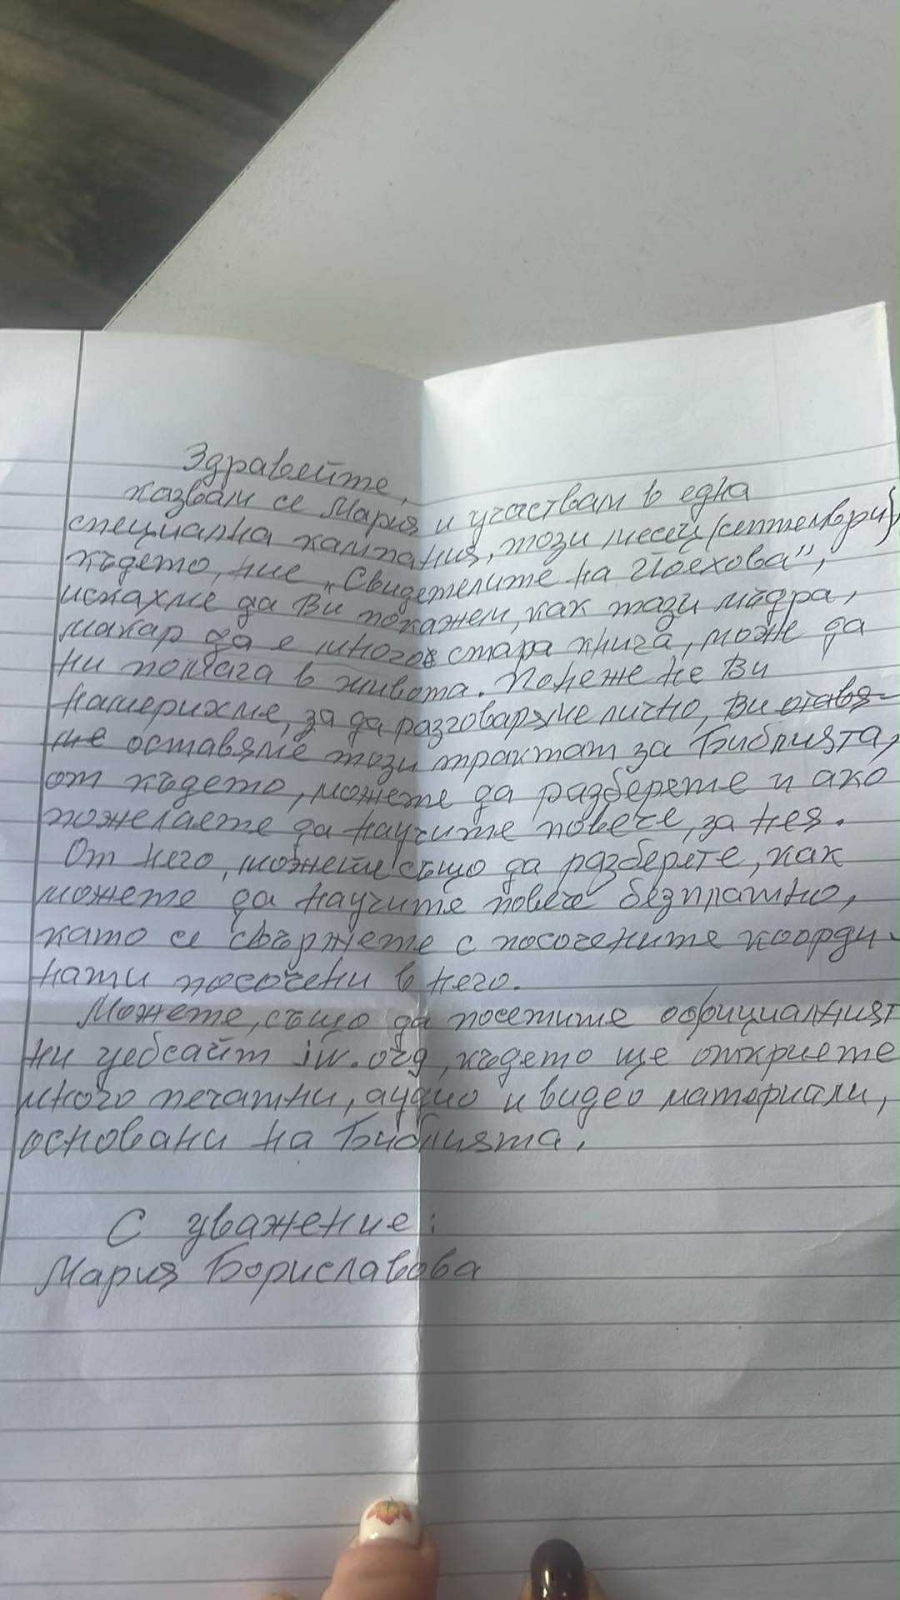 Здравейте,
казвам се Мария и участвам в една
специална кампания, този месец (септември),
където, ние „Свидетелите на Йехова“,
искахме да Ви покажем, как тази мъдра,
макар да е много стара книга, може да
ни помага в живота. Понеже не Ви
намерихме, за да разговаряме лично, Ви оставя-
ме оставяме този трактат за Библията,
от където, можете да разберете и ако
пожелаете да научите повече, за нея.
От него, можете също да разберете, как
можете да научите повече безплатно,
като се свържете с посочените коорди-
нати посочени в него.
Можете, също да посетите официалният
ни уебсайт jw.org, където ще откриете
много печатни, аудио и видео материали,
основани на Библията.
С уважение:
Мария Бориславова